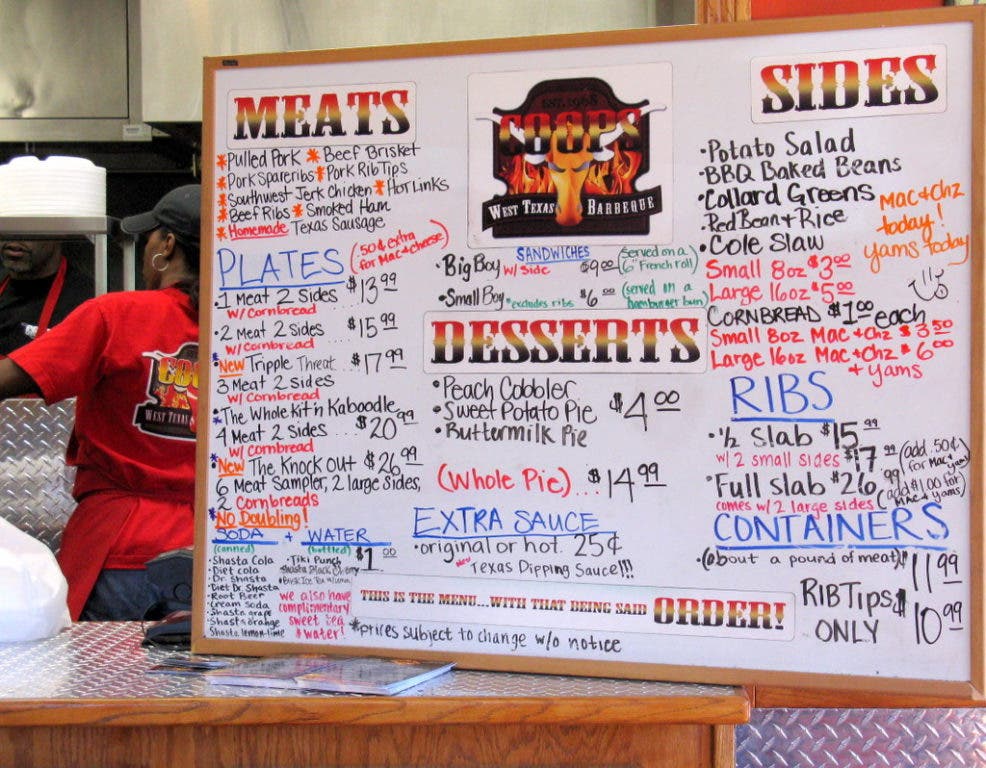 MEATS
*Pulled Pork *Beef Brisket
*Pork Spareribs *Pork Rib Tips
*Southwest Jerk Chicken *Hot Links
*Beef Ribs *Smoked Ham
*Homemade Texas Sausage
PLATES (.50¢ extra for Mac & cheese)
•1 Meat 2 Sides $13.99
w/ Cornbread
•2 Meat 2 Sides $15.99
w/ Cornbread
*New Tripple Threat $17.99
3 Meat 2 Sides
w/ Cornbread
*The Whole Kit'n Kaboodle
4 Meat 2 Sides .... $20.99
w/ Cornbread
*New The Knock Out $26.99
6 Meat Sampler, 2 large sides,
2 Cornbreads
*No Doubling!
SODA + WATER
(canned) (bottled) $1.00
•Shasta Cola
•Diet Cola
•Dr. Shasta
•Diet Dr Shasta
•Root Beer
•Cream Soda
•Shasta grape
•Shasta orange
Shasta lemon-lime
•Tiki Punch
Shasta Black Cherry
we also have complimentary sweet tea & water!
EST. 1968
COOPS
WEST TEXAS BARBEQUE
SANDWICHES
•Big Boy w/ Side $9.00 (served on a 6" French roll)
•Small Boy *excludes ribs $6.00 (served on a hamburger bun)
DESSERTS
•Peach Cobbler
•Sweet Potato Pie $4.00
•Buttermilk Pie
(Whole Pie)... $14.99
EXTRA SAUCE
•original or hot. 25¢
New Texas Dipping Sauce!!!
THIS IS THE MENU...WITH THAT BEING SAID ORDER!
*prices subject to change w/o notice
SIDES
•Potato Salad
•BBQ Baked Beans
•Collard Greens
•Red Bean + Rice
•Cole Slaw
Mac & Chz today!
yams today
Small 8oz $3.00
Large 16oz $5.00
CORNBREAD $1.00 each
Small 8oz Mac + Chz $3.50
Large 16oz Mac + Chz $6.00
+ yams
RIBS
•1/2 Slab $15.99
w/ 2 small sides $17.99 (add .50¢ for Mac & yam)
•Full slab $26.99
comes w/ 2 large sides (add $1.00 for Mac & yams)
CONTAINERS
•(about a pound of meat) $11.99
RIB TIPS ONLY $10.99
COO
WEST TEXAS